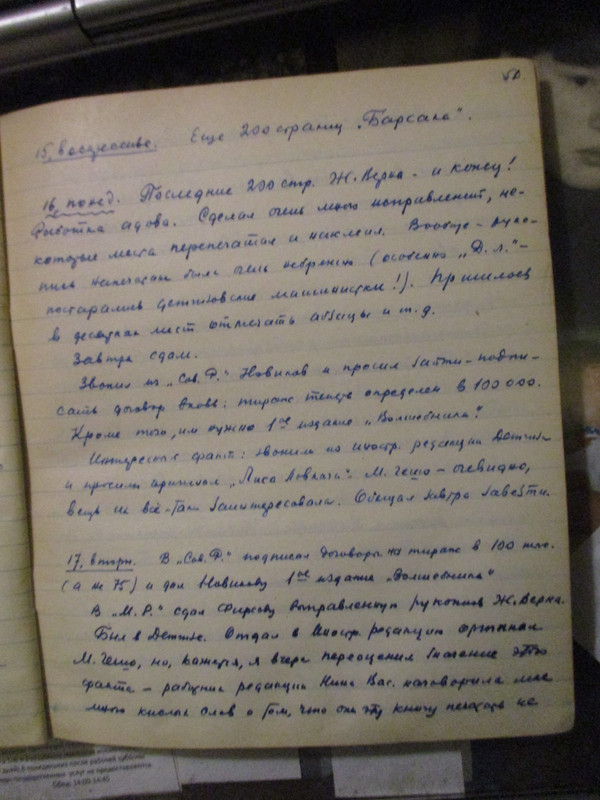 50
15, воскресенье. Еще 200 страниц „Барсака“.
16, понед. Последние 200 стр. Ж. Верна - и конец!
Работка адова. Сделал очень много исправлений, не-
которые места перепечатал и наклеил. Вообще - руко-
пись напечатана была очень небрежно (особенно „Д. л.“-
постарались детгизовские машинистки!). Пришлось
в десятках мест отмечать абзацы и т.д.
Завтра сдам.
Звонил из „Сов. Р.“ Новиков и просил зайти - подпи-
сать договор вновь: тираж теперь определен в 100 000.
Кроме того, им нужно 1ое издание „Волшебника“.
Интересный факт: звонили из иностр. редакции Детгиза
и просили оригинал „Лиса Ловкача“ М. Гешо - очевидно,
вещь их всё-таки заинтересовала. Обещал завтра завезти.
17, вторн. В „Сов. Р.“ подписал договоры на тираж в 100 тыс.
(а не 75) и дал Новикову 1ое издание „Волшебника“
В „М. Р.“ сдал Фирсову выправленную рукопись Ж. Верна.
Был в Детгизе. Отдал в Иностр. редакцию оригинал
М. Гешо, но, кажется, я вчера переоценил значение этого
факта - работник редакции Нина Вас. наговорила мне
много кислых слов о том, что они эту книгу не